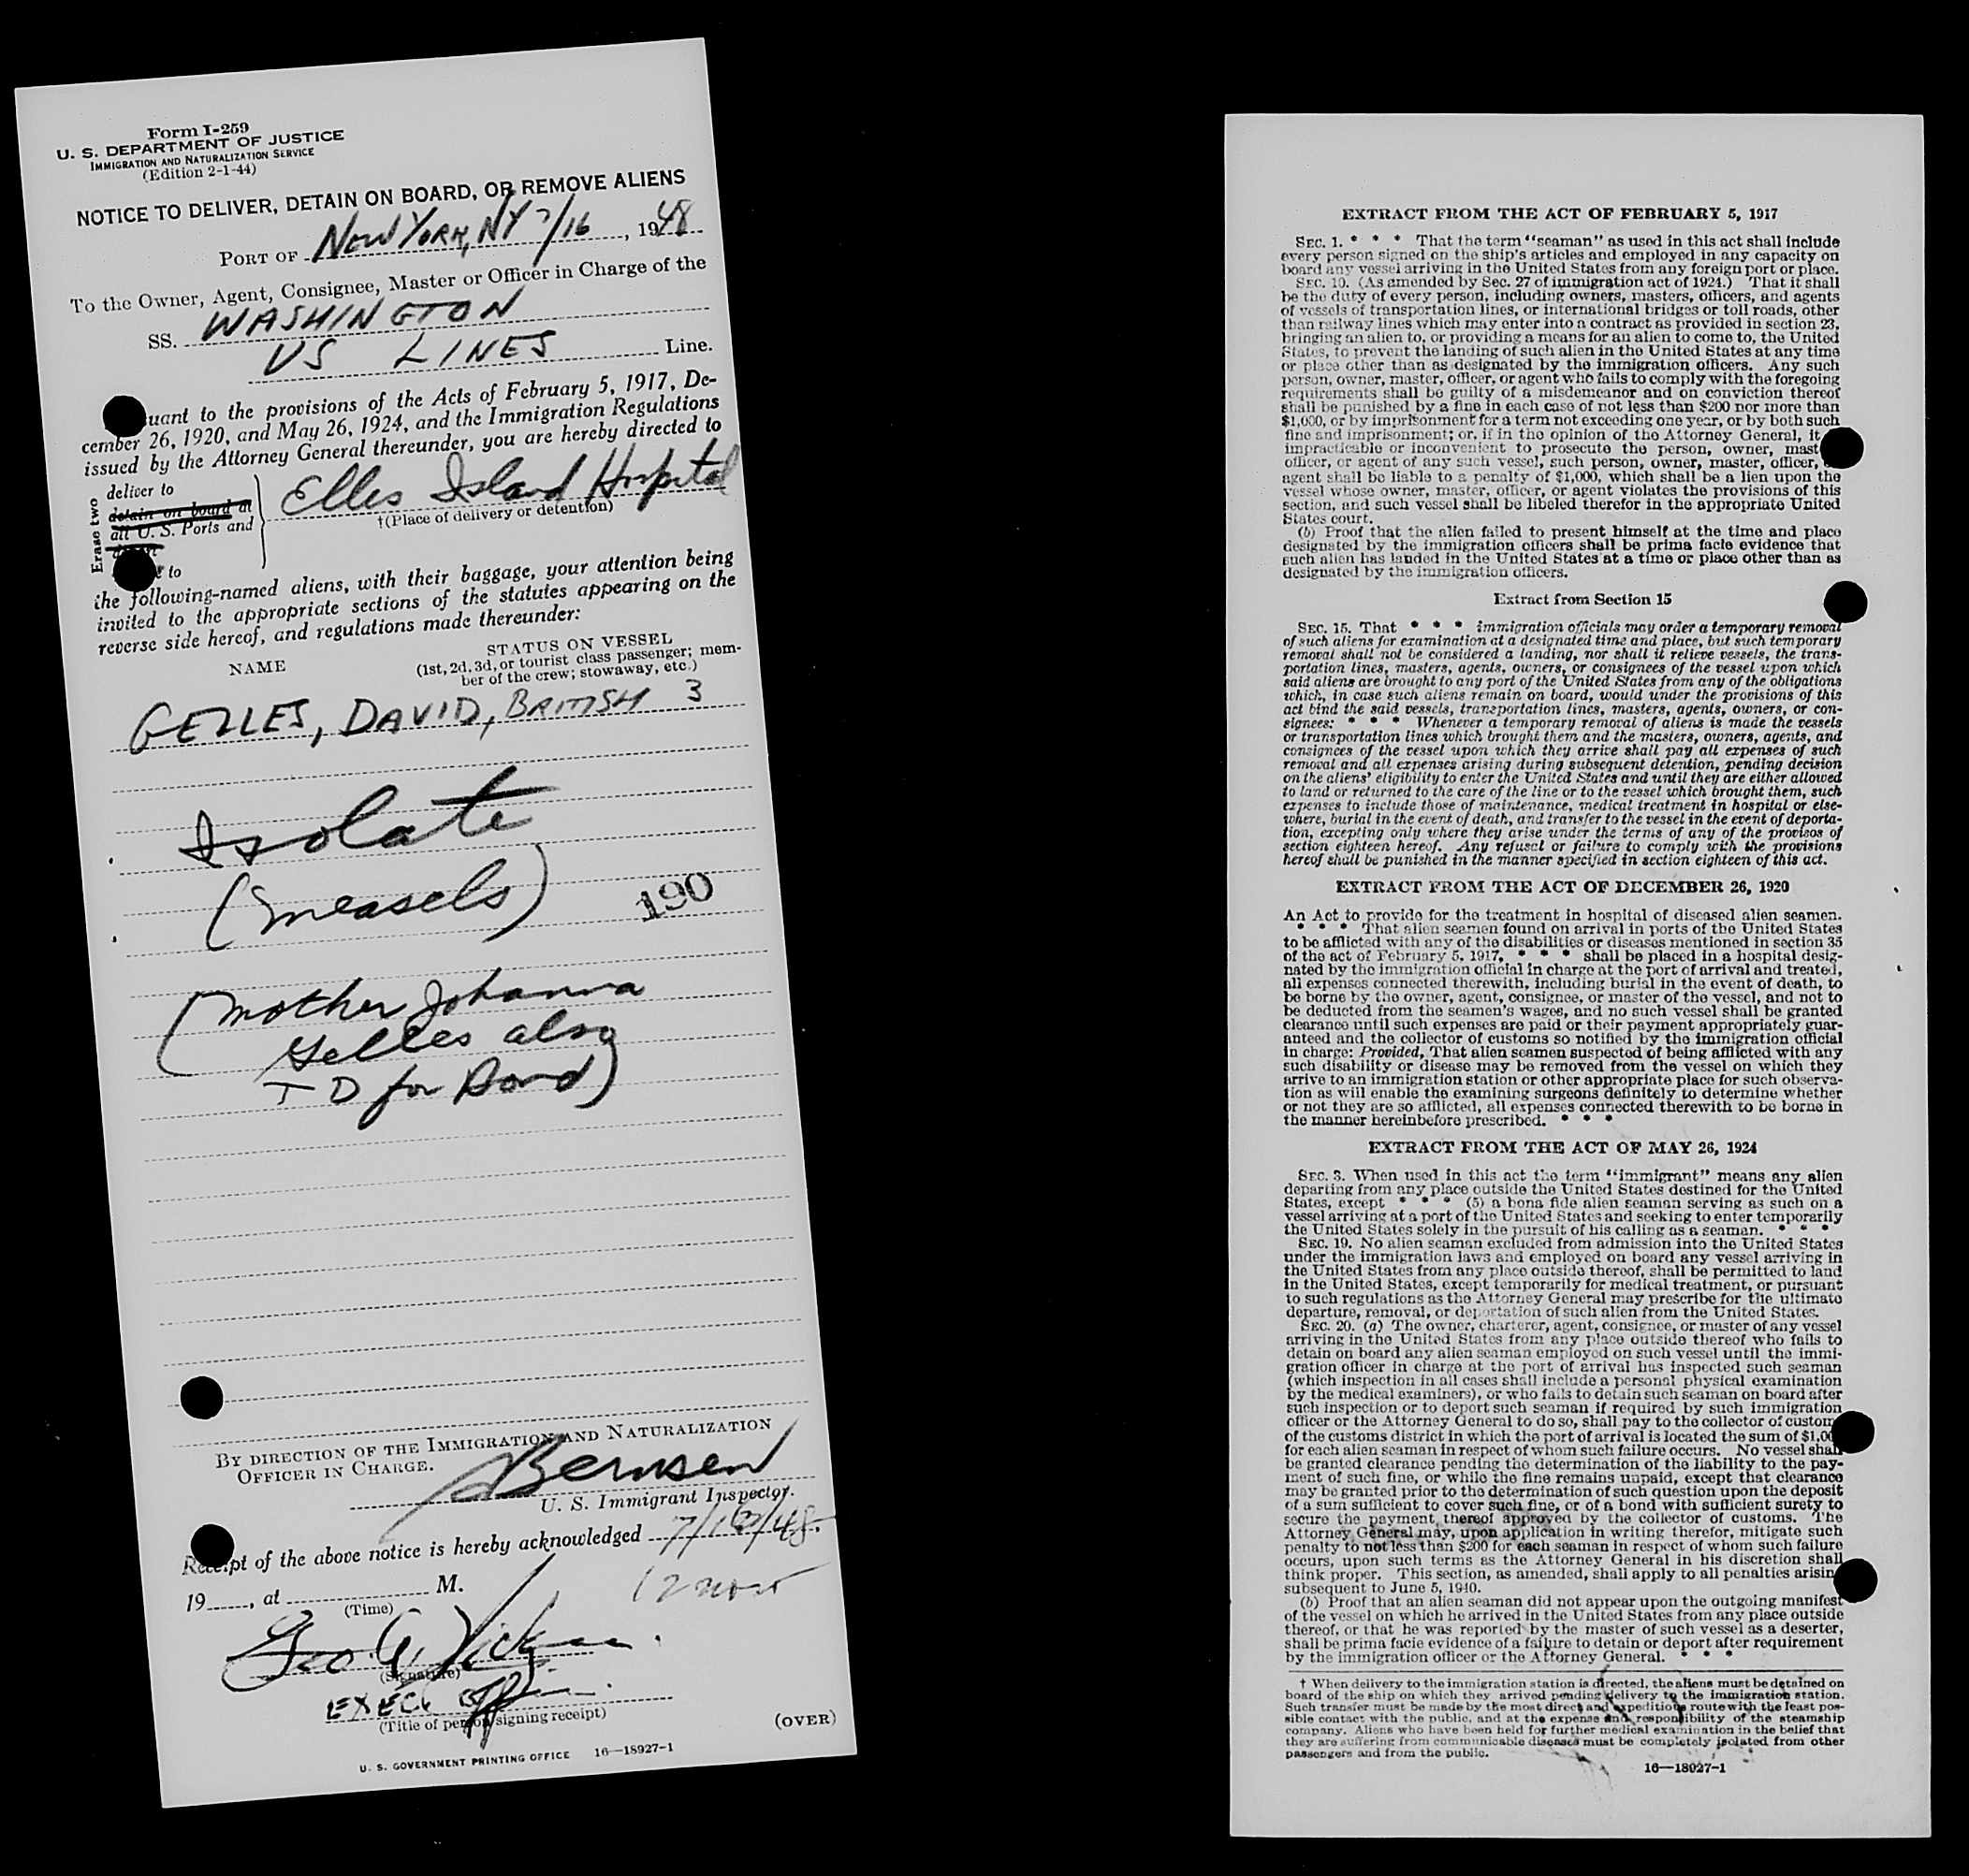 Form I-259
U. S. DEPARTMENT OF JUSTICE
IMMIGRATION AND NATURALIZATION SERVICE
(Edition 2-1-44)
NOTICE TO DELIVER, DETAIN ON BOARD, OR REMOVE ALIENS
PORT OF NEW YORK, NY 7/16, 1948
To the Owner, Agent, Consignee, Master or Officer in Charge of the
SS. WASHINGTON
US LINES Line.
uant to the provisions of the Acts of February 5, 1917, De-
cember 26, 1920, and May 26, 1924, and the Immigration Regulations
issued by the Attorney General thereunder, you are hereby directed to
Erase two
deliver to
detain on board at
all U. S. Ports and
to
Elles Island Hospital
†(Place of delivery or detention)
the following-named aliens, with their baggage, your attention being
invited to the appropriate sections of the statutes appearing on the
reverse side hereof, and regulations made thereunder:
NAME
STATUS ON VESSEL
(1st, 2d, 3d, or tourist class passenger; mem-
ber of the crew; stowaway, etc.)
GELLES, DAVID, BRITISH 3
Isolate
(measels)
190
(mother Johanna
Gelles also
T D for Bond)
BY DIRECTION OF THE IMMIGRATION AND NATURALIZATION
OFFICER IN CHARGE.
Bernsen
U. S. Immigrant Inspector.
Receipt of the above notice is hereby acknowledged 7/16/48.
19 , at M. 12 noon
(Time)
Geo. A.
(Signature)
EXEC.
(Title of person signing receipt)
(OVER)
U. S. GOVERNMENT PRINTING OFFICE 16—18927-1
EXTRACT FROM THE ACT OF FEBRUARY 5, 1917
SEC. 1. * * * That the term "seaman" as used in this act shall include
every person signed on the ship's articles and employed in any capacity on
board any vessel arriving in the United States from any foreign port or place.
SEC. 10. (As amended by Sec. 27 of immigration act of 1924.) That it shall
be the duty of every person, including owners, masters, officers, and agents
of vessels of transportation lines, or international bridges or toll roads, other
than railway lines which may enter into a contract as provided in section 23,
bringing an alien to, or providing a means for an alien to come to, the United
States, to prevent the landing of such alien in the United States at any time
or place other than as designated by the immigration officers. Any such
person, owner, master, officer, or agent who fails to comply with the foregoing
requirements shall be guilty of a misdemeanor and on conviction thereof
shall be punished by a fine in each case of not less than $200 nor more than
$1,000, or by imprisonment for a term not exceeding one year, or by both such
fine and imprisonment; or, if in the opinion of the Attorney General, it
impracticable or inconvenient to prosecute the person, owner, mast
officer, or agent of any such vessel, such person, owner, master, officer,
agent shall be liable to a penalty of $1,000, which shall be a lien upon the
vessel whose owner, master, officer, or agent violates the provisions of this
section, and such vessel shall be libeled therefor in the appropriate United
States court.
(b) Proof that the alien failed to present himself at the time and place
designated by the immigration officers shall be prima facie evidence that
such alien has landed in the United States at a time or place other than as
designated by the immigration officers.
Extract from Section 15
SEC. 15. That * * * immigration officials may order a temporary removal
of such aliens for examination at a designated time and place, but such temporary
removal shall not be considered a landing, nor shall it relieve vessels, the trans-
portation lines, masters, agents, owners, or consignees of the vessel upon which
said aliens are brought to any port of the United States from any of the obligations
which, in case such aliens remain on board, would under the provisions of this
act bind the said vessels, transportation lines, masters, agents, owners, or con-
signees: * * * Whenever a temporary removal of aliens is made the vessels
or transportation lines which brought them and the masters, owners, agents, and
consignees of the vessel upon which they arrive shall pay all expenses of such
removal and all expenses arising during subsequent detention, pending decision
on the aliens' eligibility to enter the United States and until they are either allowed
to land or returned to the care of the line or to the vessel which brought them, such
expenses to include those of maintenance, medical treatment in hospital or else-
where, burial in the event of death, and transfer to the vessel in the event of deporta-
tion, excepting only where they arise under the terms of any of the provisos of
section eighteen hereof. Any refusal or failure to comply with the provisions
hereof shall be punished in the manner specified in section eighteen of this act.
EXTRACT FROM THE ACT OF DECEMBER 26, 1920
An Act to provide for the treatment in hospital of diseased alien seamen.
* * * That alien seamen found on arrival in ports of the United States
to be afflicted with any of the disabilities or diseases mentioned in section 35
of the act of February 5, 1917, * * * shall be placed in a hospital desig-
nated by the immigration official in charge at the port of arrival and treated,
all expenses connected therewith, including burial in the event of death, to
be borne by the owner, agent, consignee, or master of the vessel, and not to
be deducted from the seamen's wages, and no such vessel shall be granted
clearance until such expenses are paid or their payment appropriately guar-
anteed and the collector of customs so notified by the immigration official
in charge: Provided, That alien seamen suspected of being afflicted with any
such disability or disease may be removed from the vessel on which they
arrive to an immigration station or other appropriate place for such observa-
tion as will enable the examining surgeons definitely to determine whether
or not they are so afflicted, all expenses connected therewith to be borne in
the manner hereinbefore prescribed. * * *
EXTRACT FROM THE ACT OF MAY 26, 1924
SEC. 3. When used in this act the term "immigrant" means any alien
departing from any place outside the United States destined for the United
States, except * * * (5) a bona fide alien seaman serving as such on a
vessel arriving at a port of the United States and seeking to enter temporarily
the United States solely in the pursuit of his calling as a seaman. * * *
SEC. 19. No alien seaman excluded from admission into the United States
under the immigration laws and employed on board any vessel arriving in
the United States from any place outside thereof, shall be permitted to land
in the United States, except temporarily for medical treatment, or pursuant
to such regulations as the Attorney General may prescribe for the ultimate
departure, removal, or deportation of such alien from the United States.
SEC. 20. (a) The owner, charterer, agent, consignee, or master of any vessel
arriving in the United States from any place outside thereof who fails to
detain on board any alien seaman employed on such vessel until the immi-
gration officer in charge at the port of arrival has inspected such seaman
(which inspection in all cases shall include a personal physical examination
by the medical examiners), or who fails to detain such seaman on board after
such inspection or to deport such seaman if required by such immigration
officer or the Attorney General to do so, shall pay to the collector of custom
of the customs district in which the port of arrival is located the sum of $1,00
for each alien seaman in respect of whom such failure occurs. No vessel shall
be granted clearance pending the determination of the liability to the pay-
ment of such fine, or while the fine remains unpaid, except that clearance
may be granted prior to the determination of such question upon the deposit
of a sum sufficient to cover such fine, or of a bond with sufficient surety to
secure the payment thereof approved by the collector of customs. The
Attorney General may, upon application in writing therefor, mitigate such
penalty to not less than $200 for each seaman in respect of whom such failure
occurs, upon such terms as the Attorney General in his discretion shall
think proper. This section, as amended, shall apply to all penalties arisin
subsequent to June 5, 1940.
(b) Proof that an alien seaman did not appear upon the outgoing manifest
of the vessel on which he arrived in the United States from any place outside
thereof, or that he was reported by the master of such vessel as a deserter,
shall be prima facie evidence of a failure to detain or deport after requirement
by the immigration officer or the Attorney General. * * *
† When delivery to the immigration station is directed, the aliens must be detained on
board of the ship on which they arrived pending delivery to the immigration station.
Such transfer must be made by the most direct and expeditious route with the least pos-
sible contact with the public, and at the expense and responsibility of the steamship
company. Aliens who have been held for further medical examination in the belief that
they are suffering from communicable diseases must be completely isolated from other
passengers and from the public.
16—18927-1